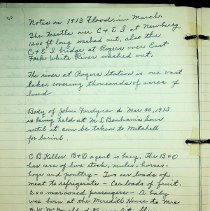 Notes on 1913 Flood in March
The trestles over C & E I at Newberg,
1200 ft long washed out, also the
C & E I bridge at Rogers over East
Fork White River washed out.
The river at Rogers Station is one vast
lake, covering thousands of acres of
land
Body of John Fudge Mar 30, 1913
is being held at McBenham's home
until it can be taken to Mitchell
for burial.
C B Filler B+O agent is busy. The B+O
has cars of live stock, mules, horses,
hogs and poultry - Ten car loads of
meat to refrigerate - Car loads of fruit.
200 marooned passengers - A baby
was born at the Meredith House to Mrs